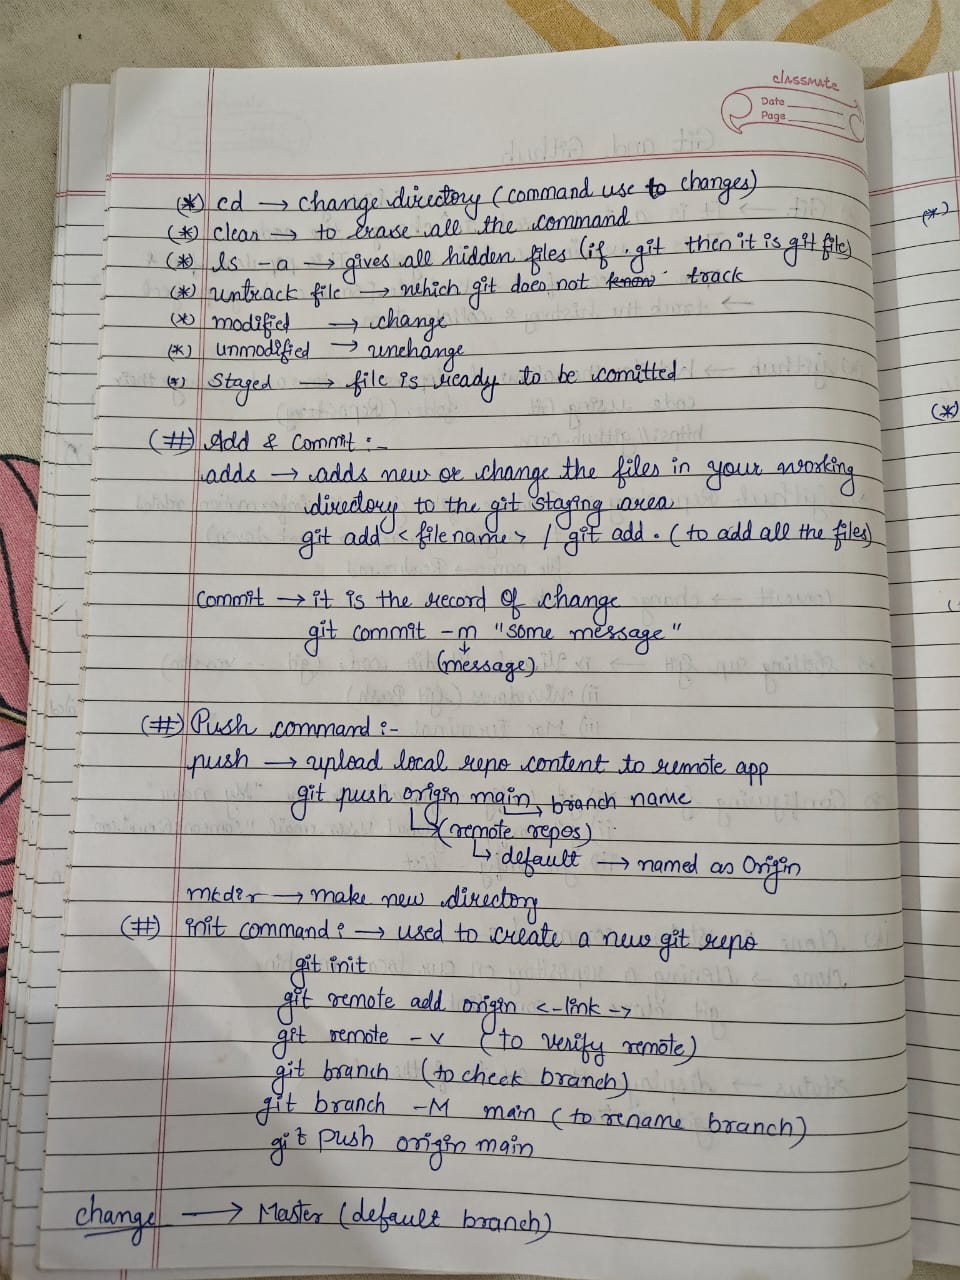 classmate
Date
Page
(*) cd → change directory (command use to changes)
(*) clear → to erase all the command
(*) ls -a → gives all hidden files (if .git then it is git file)
(*) untrack file → which git does not know track
(*) modified → change
(*) unmodified → unchange
(*) staged → file is ready to be comitted
(#) Add & Commit :-
adds → adds new or change the files in your working
directory to the git staging area
git add <filename> / git add . (to add all the files)
Commit → it is the record of change
git commit -m "some message"
(message)
(#) Push command :-
push → upload local repo content to remote app
git push origin main → branch name
↳ (remote repos)
↳ default → named as Origin
mkdir → make new directory
(#) init command : → used to create a new git repo
git init
git remote add origin <-link->
git remote -v (to verify remote)
git branch (to check branch)
git branch -M main (to rename branch)
git push origin main
change → Master (default branch)
(*)
(*)